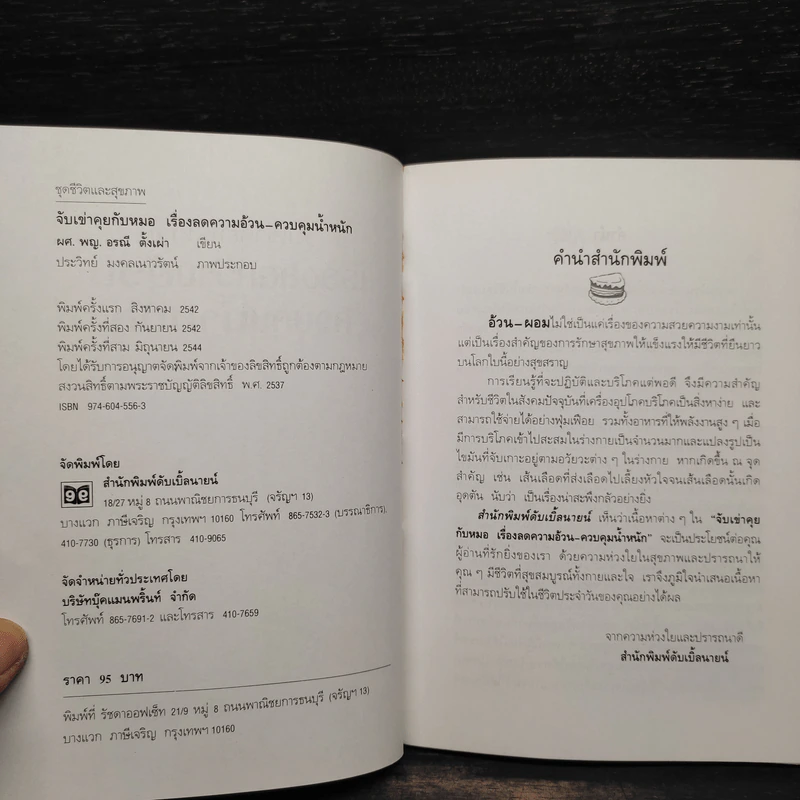 ชุดชีวิตและสุขภาพ
จับเข่าคุยกับหมอ เรื่องลดความอ้วน–ควบคุมน้ำหนัก
ผศ. พญ. อรณี ตั้งเผ่า เขียน
ประวิทย์ มงคลเนาวรัตน์ ภาพประกอบ
พิมพ์ครั้งแรก สิงหาคม 2542
พิมพ์ครั้งที่สอง กันยายน 2542
พิมพ์ครั้งที่สาม มิถุนายน 2544
โดยได้รับการอนุญาตจัดพิมพ์จากเจ้าของลิขสิทธิ์ถูกต้องตามกฎหมาย
สงวนสิทธิ์ตามพระราชบัญญัติลิขสิทธิ์ พ.ศ. 2537
ISBN 974-604-556-3
จัดพิมพ์โดย
สำนักพิมพ์ดับเบิ้ลนายน์
18/27 หมู่ 8 ถนนพาณิชยการธนบุรี (จรัญฯ 13)
บางแวก ภาษีเจริญ กรุงเทพฯ 10160 โทรศัพท์ 865-7532-3 (บรรณาธิการ),
410-7730 (ธุรการ) โทรสาร 410-9065
จัดจำหน่ายทั่วประเทศโดย
บริษัทบุ๊คแมนพริ้นท์ จำกัด
โทรศัพท์ 865-7691-2 และโทรสาร 410-7659
ราคา 95 บาท
พิมพ์ที่ รัชดาออฟเซ็ท 21/9 หมู่ 8 ถนนพาณิชยการธนบุรี (จรัญฯ 13)
บางแวก ภาษีเจริญ กรุงเทพฯ 10160
คำนำสำนักพิมพ์
อ้วน–ผอมไม่ใช่เป็นแค่เรื่องของความสวยความงามเท่านั้น
แต่เป็นเรื่องสำคัญของการรักษาสุขภาพให้แข็งแรงให้มีชีวิตที่ยืนยาว
บนโลกใบนี้อย่างสุขสราญ
การเรียนรู้ที่จะปฏิบัติและบริโภคแต่พอดี จึงมีความสำคัญ
สำหรับชีวิตในสังคมปัจจุบันที่เครื่องอุปโภคบริโภคเป็นสิ่งหาง่าย และ
สามารถใช้จ่ายได้อย่างฟุ่มเฟือย รวมทั้งอาหารที่ให้พลังงานสูง ๆ เมื่อ
มีการบริโภคเข้าไปสะสมในร่างกายเป็นจำนวนมากและแปลงรูปเป็น
ไขมันที่จับเกาะอยู่ตามอวัยวะต่าง ๆ ในร่างกาย หากเกิดขึ้น ณ จุด
สำคัญ เช่น เส้นเลือดที่ส่งเลือดไปเลี้ยงหัวใจจนเส้นเลือดนั้นเกิด
อุดตัน นับว่า เป็นเรื่องน่าสะพึงกลัวอย่างยิ่ง
สำนักพิมพ์ดับเบิ้ลนายน์ เห็นว่าเนื้อหาต่าง ๆ ใน "จับเข่าคุย
กับหมอ เรื่องลดความอ้วน-ควบคุมน้ำหนัก" จะเป็นประโยชน์ต่อคุณ
ผู้อ่านที่รักยิ่งของเรา ด้วยความห่วงใยในสุขภาพและปรารถนาให้
คุณ ๆ มีชีวิตที่สุขสมบูรณ์ทั้งกายและใจ เราจึงภูมิใจนำเสนอเนื้อหา
ที่สามารถปรับใช้ในชีวิตประจำวันของคุณอย่างได้ผล
จากความห่วงใยและปรารถนาดี
สำนักพิมพ์ดับเบิ้ลนายน์